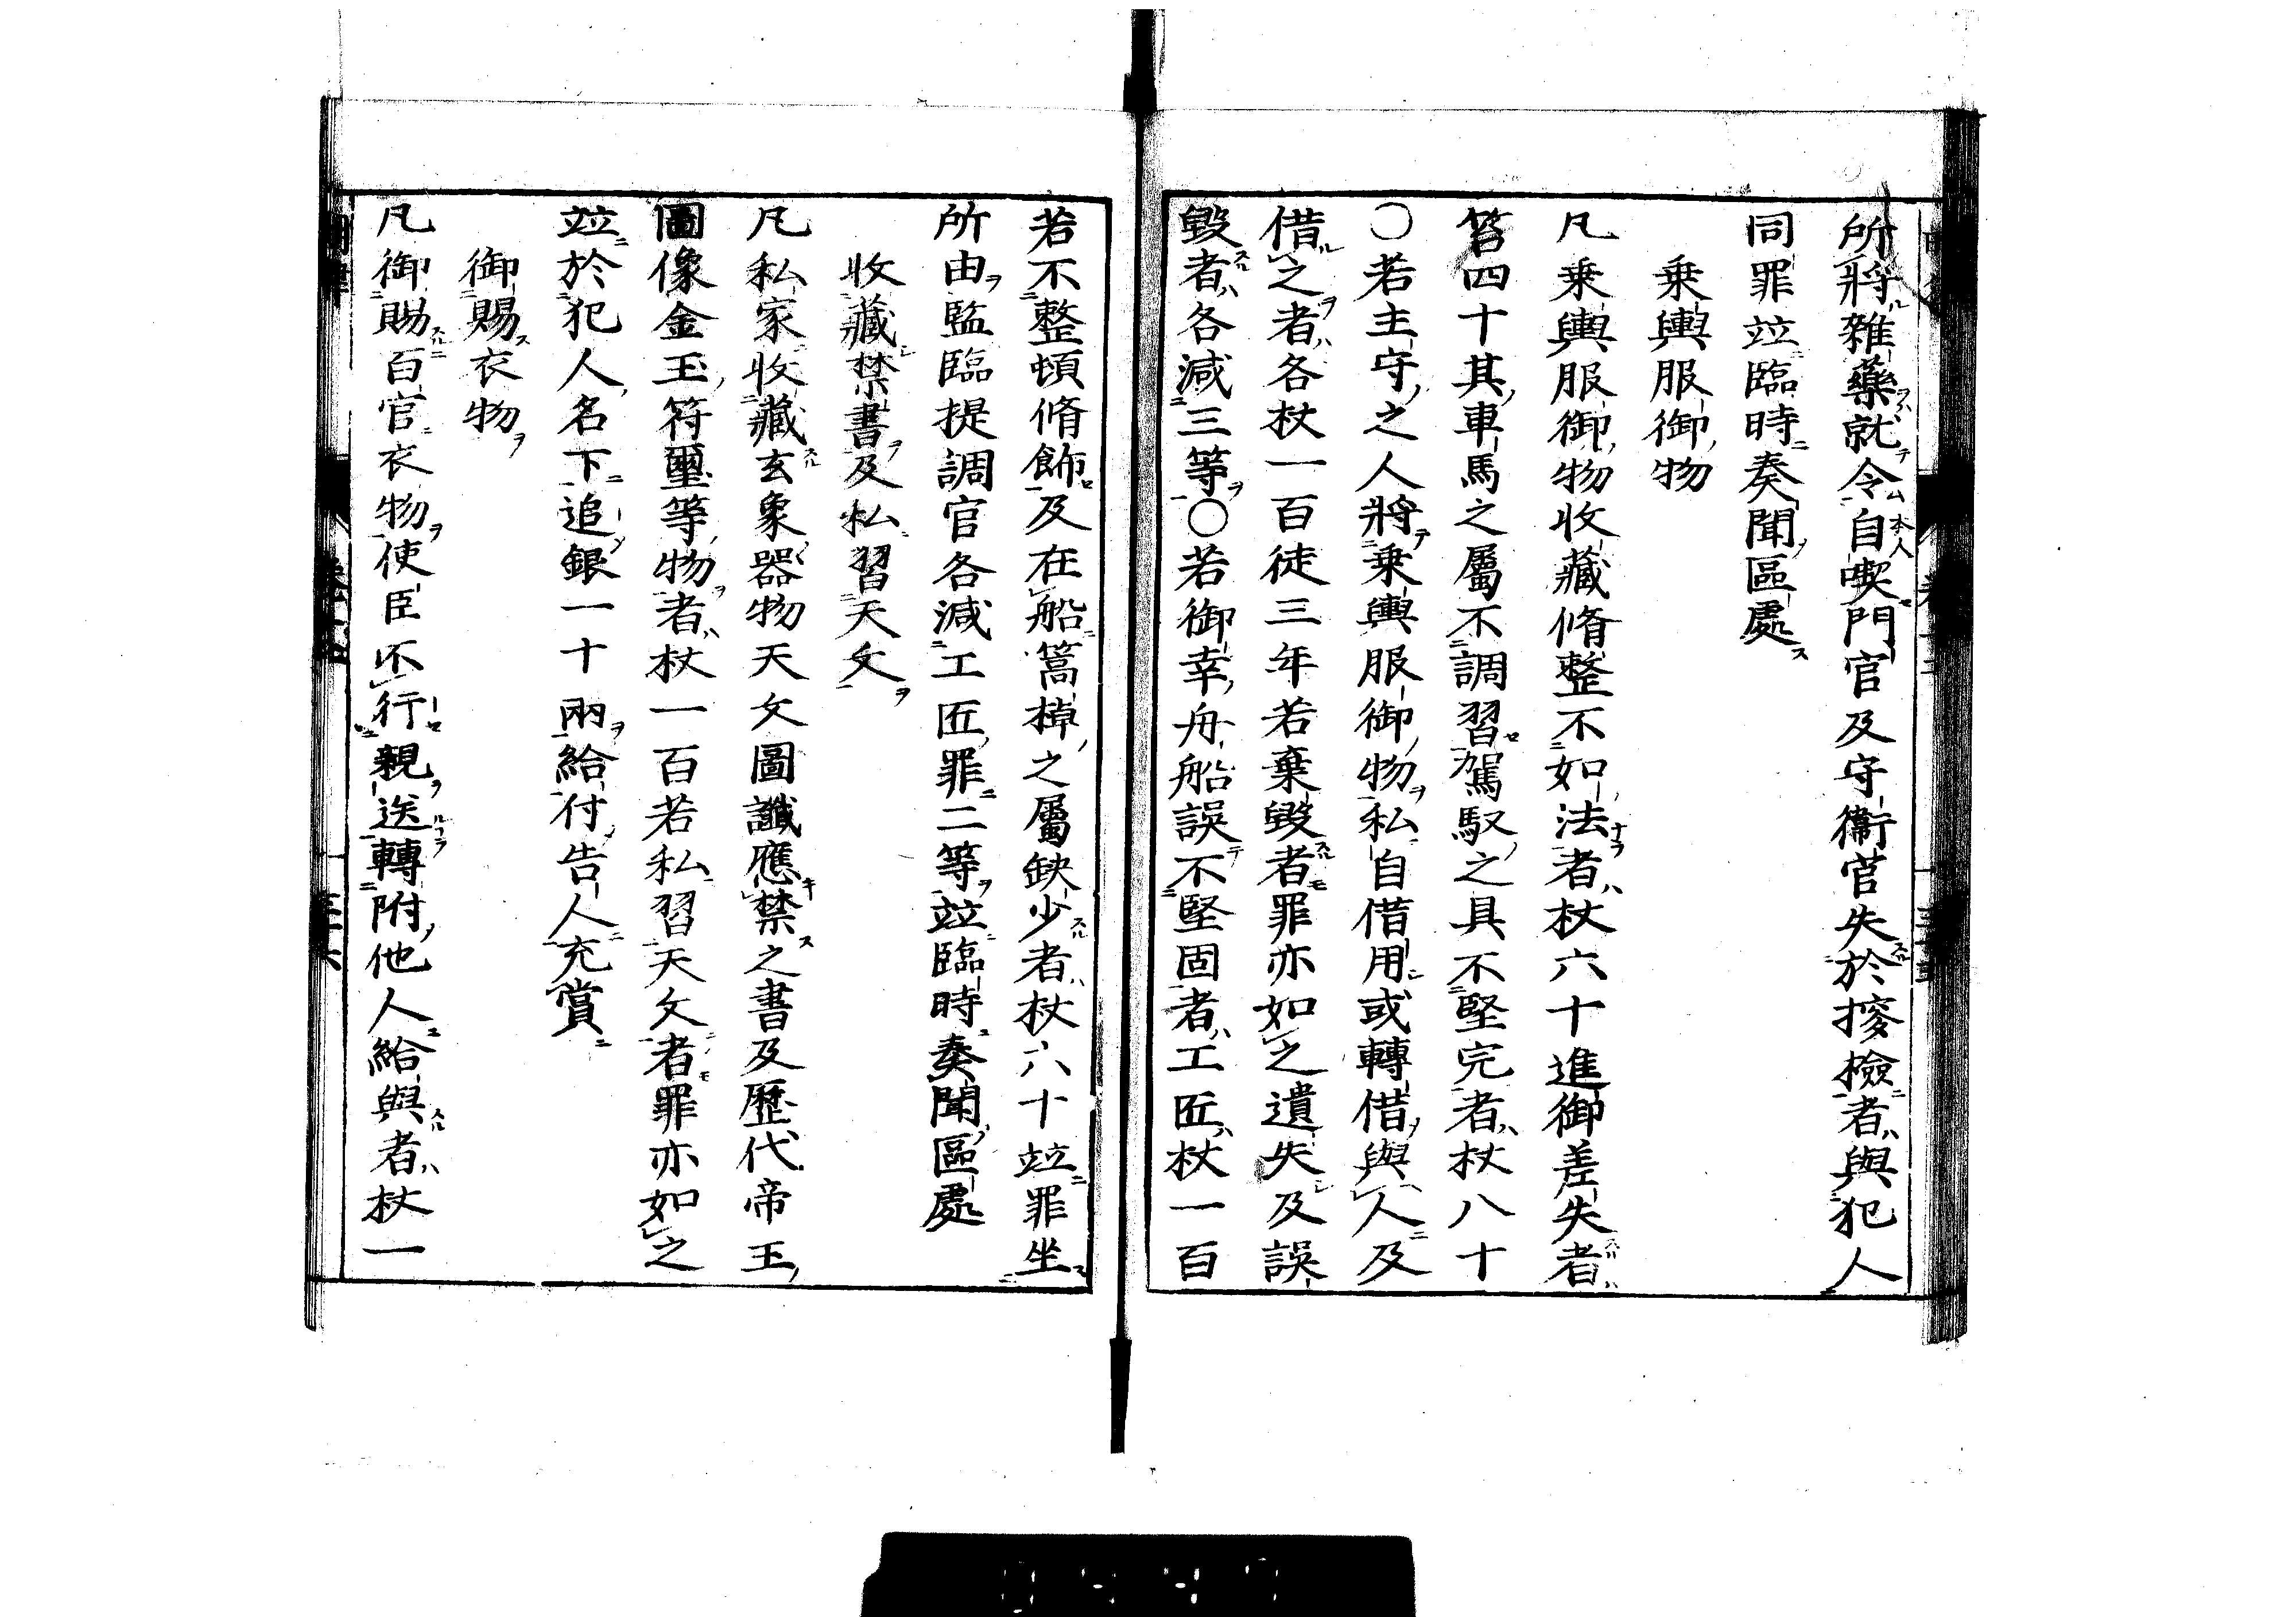 所將雜藥就令自喫門官及守衞官失於搜檢者與犯人
同罪竝臨時奏聞區處
乗輿服御物
凡乗輿服御物收藏脩整不如法者杖六十進御差失者
笞四十其車馬之屬不調習駕馭之具不堅完者杖八十
〇若主守之人將乗輿服御物私自借用或轉借與人及
借之者各杖一百徒三年若棄毀者罪亦如之遺失及誤
毀者各減三等〇若御幸舟船誤不堅固者工匠杖一百
若不整頓脩飾及在船篙棹之屬缺少者杖六十竝罪坐
所由監臨提調官各減工匠罪二等竝臨時奏聞區處
收藏禁書及私習天文
凡私家收藏玄象器物天文圖讖應禁之書及歷代帝王
圖像金玉符璽等物者杖一百若私習天文者罪亦如之
竝於犯人名下追銀一十兩給付告人充賞
御賜衣物
凡御賜百官衣物使臣不行親送轉附他人給與者杖一